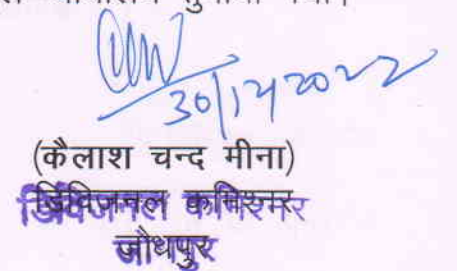 30/12/2022
(कैलाश चन्द मीना)
डिविजनल कमिश्नर
जोधपुर